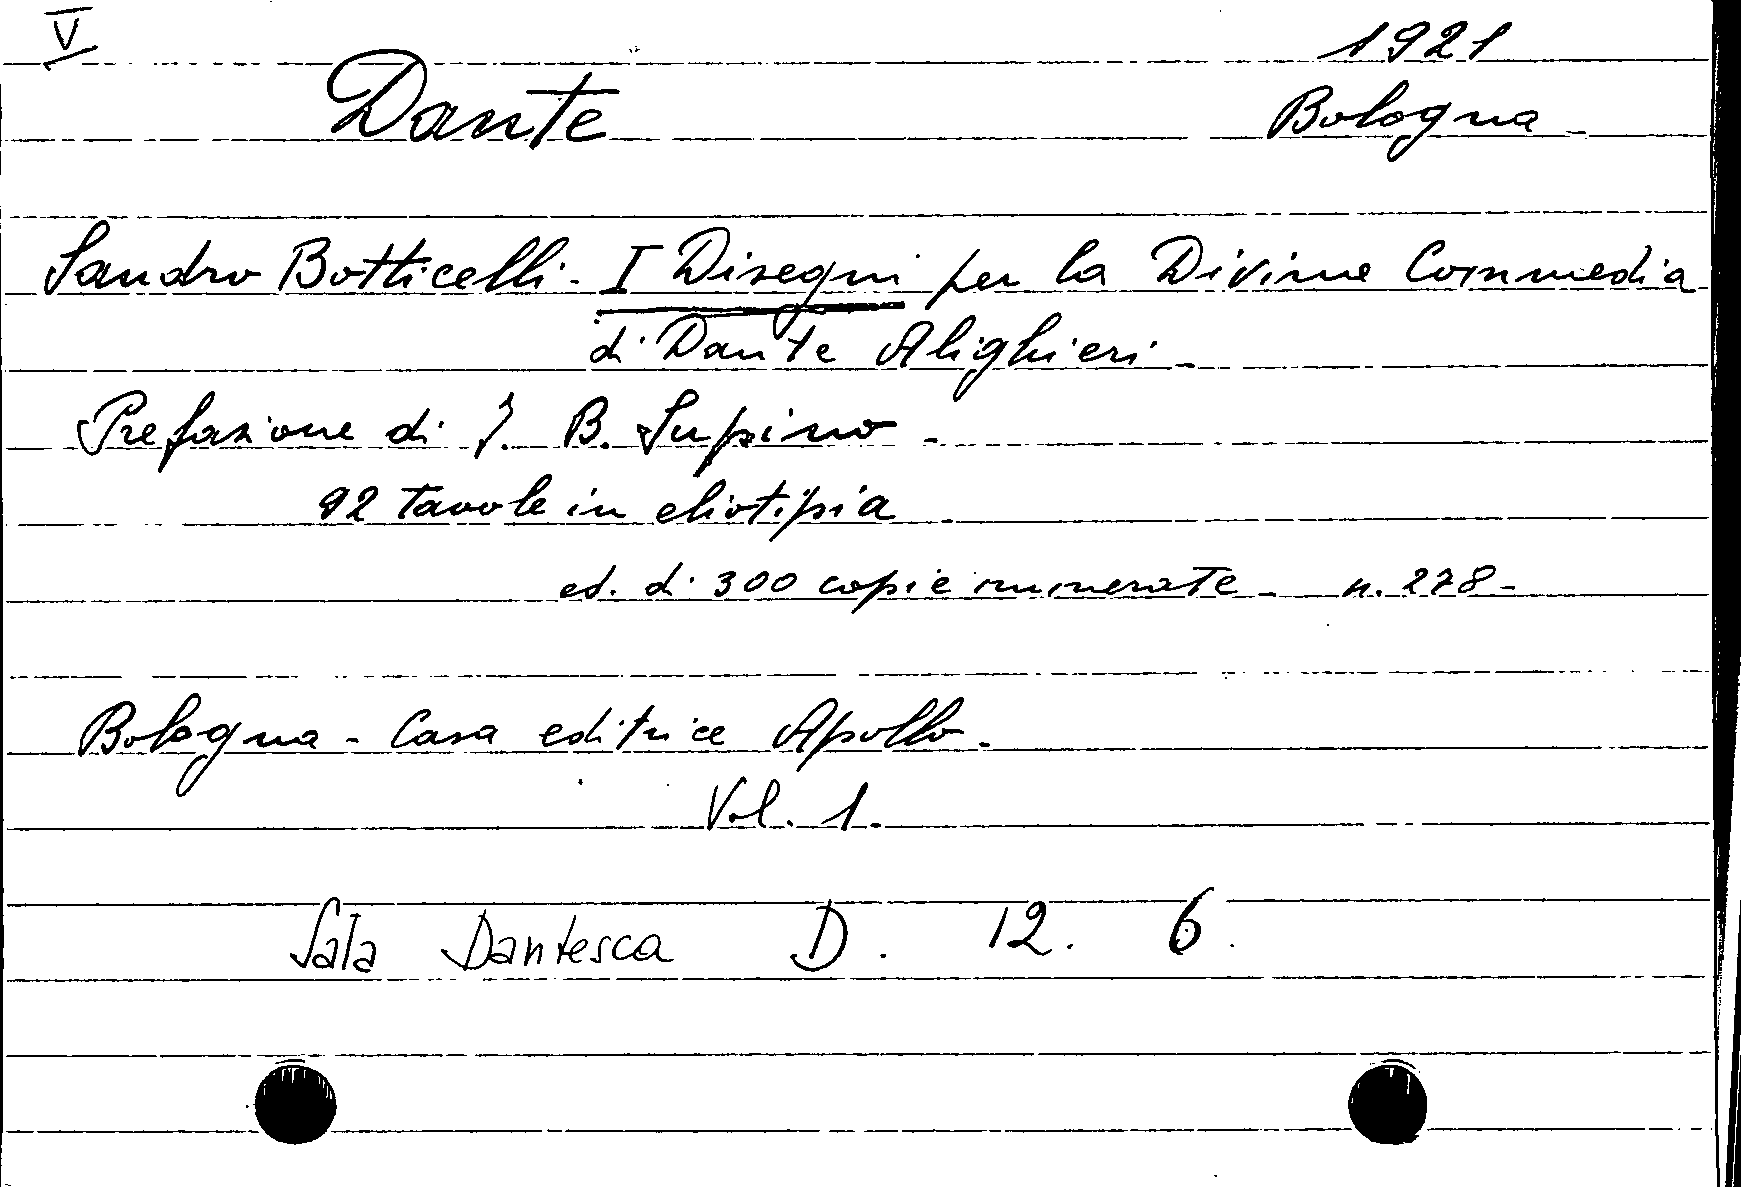 V
1921
Dante
Bologna
Sandro Botticelli - I Disegni per la Divina Commedia
di Dante Alighieri -
Prefazione di I. B. Supino -
92 tavole in eliotipia
ed. di 300 copie numerate - n. 278 -
Bologna - Casa editrice Apollo -
Vol. 1.
Sala Dantesca D. 12. 6.